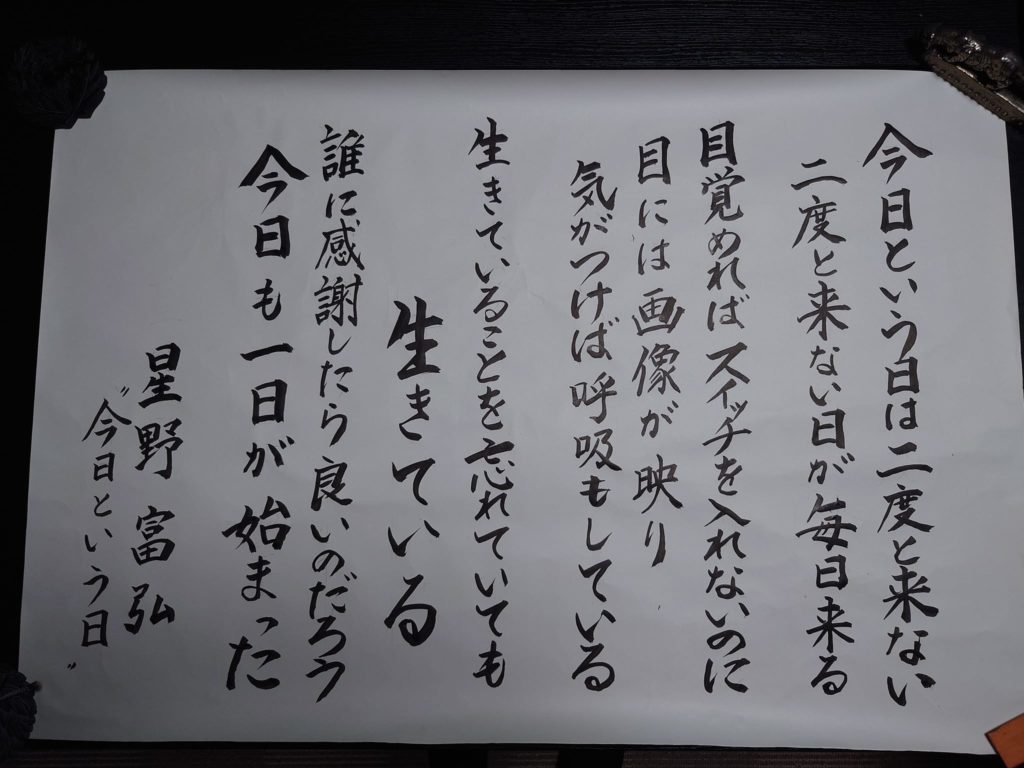 今日という日は二度と来ない
二度と来ない日が毎日来る
目覚めればスイッチを入れないのに
目には画像が映り
気がつけば呼吸もしている
生きていることを忘れていても
生きている
誰に感謝したら良いのだろう
今日も一日が始まった
星野富弘
〝今日という日〟